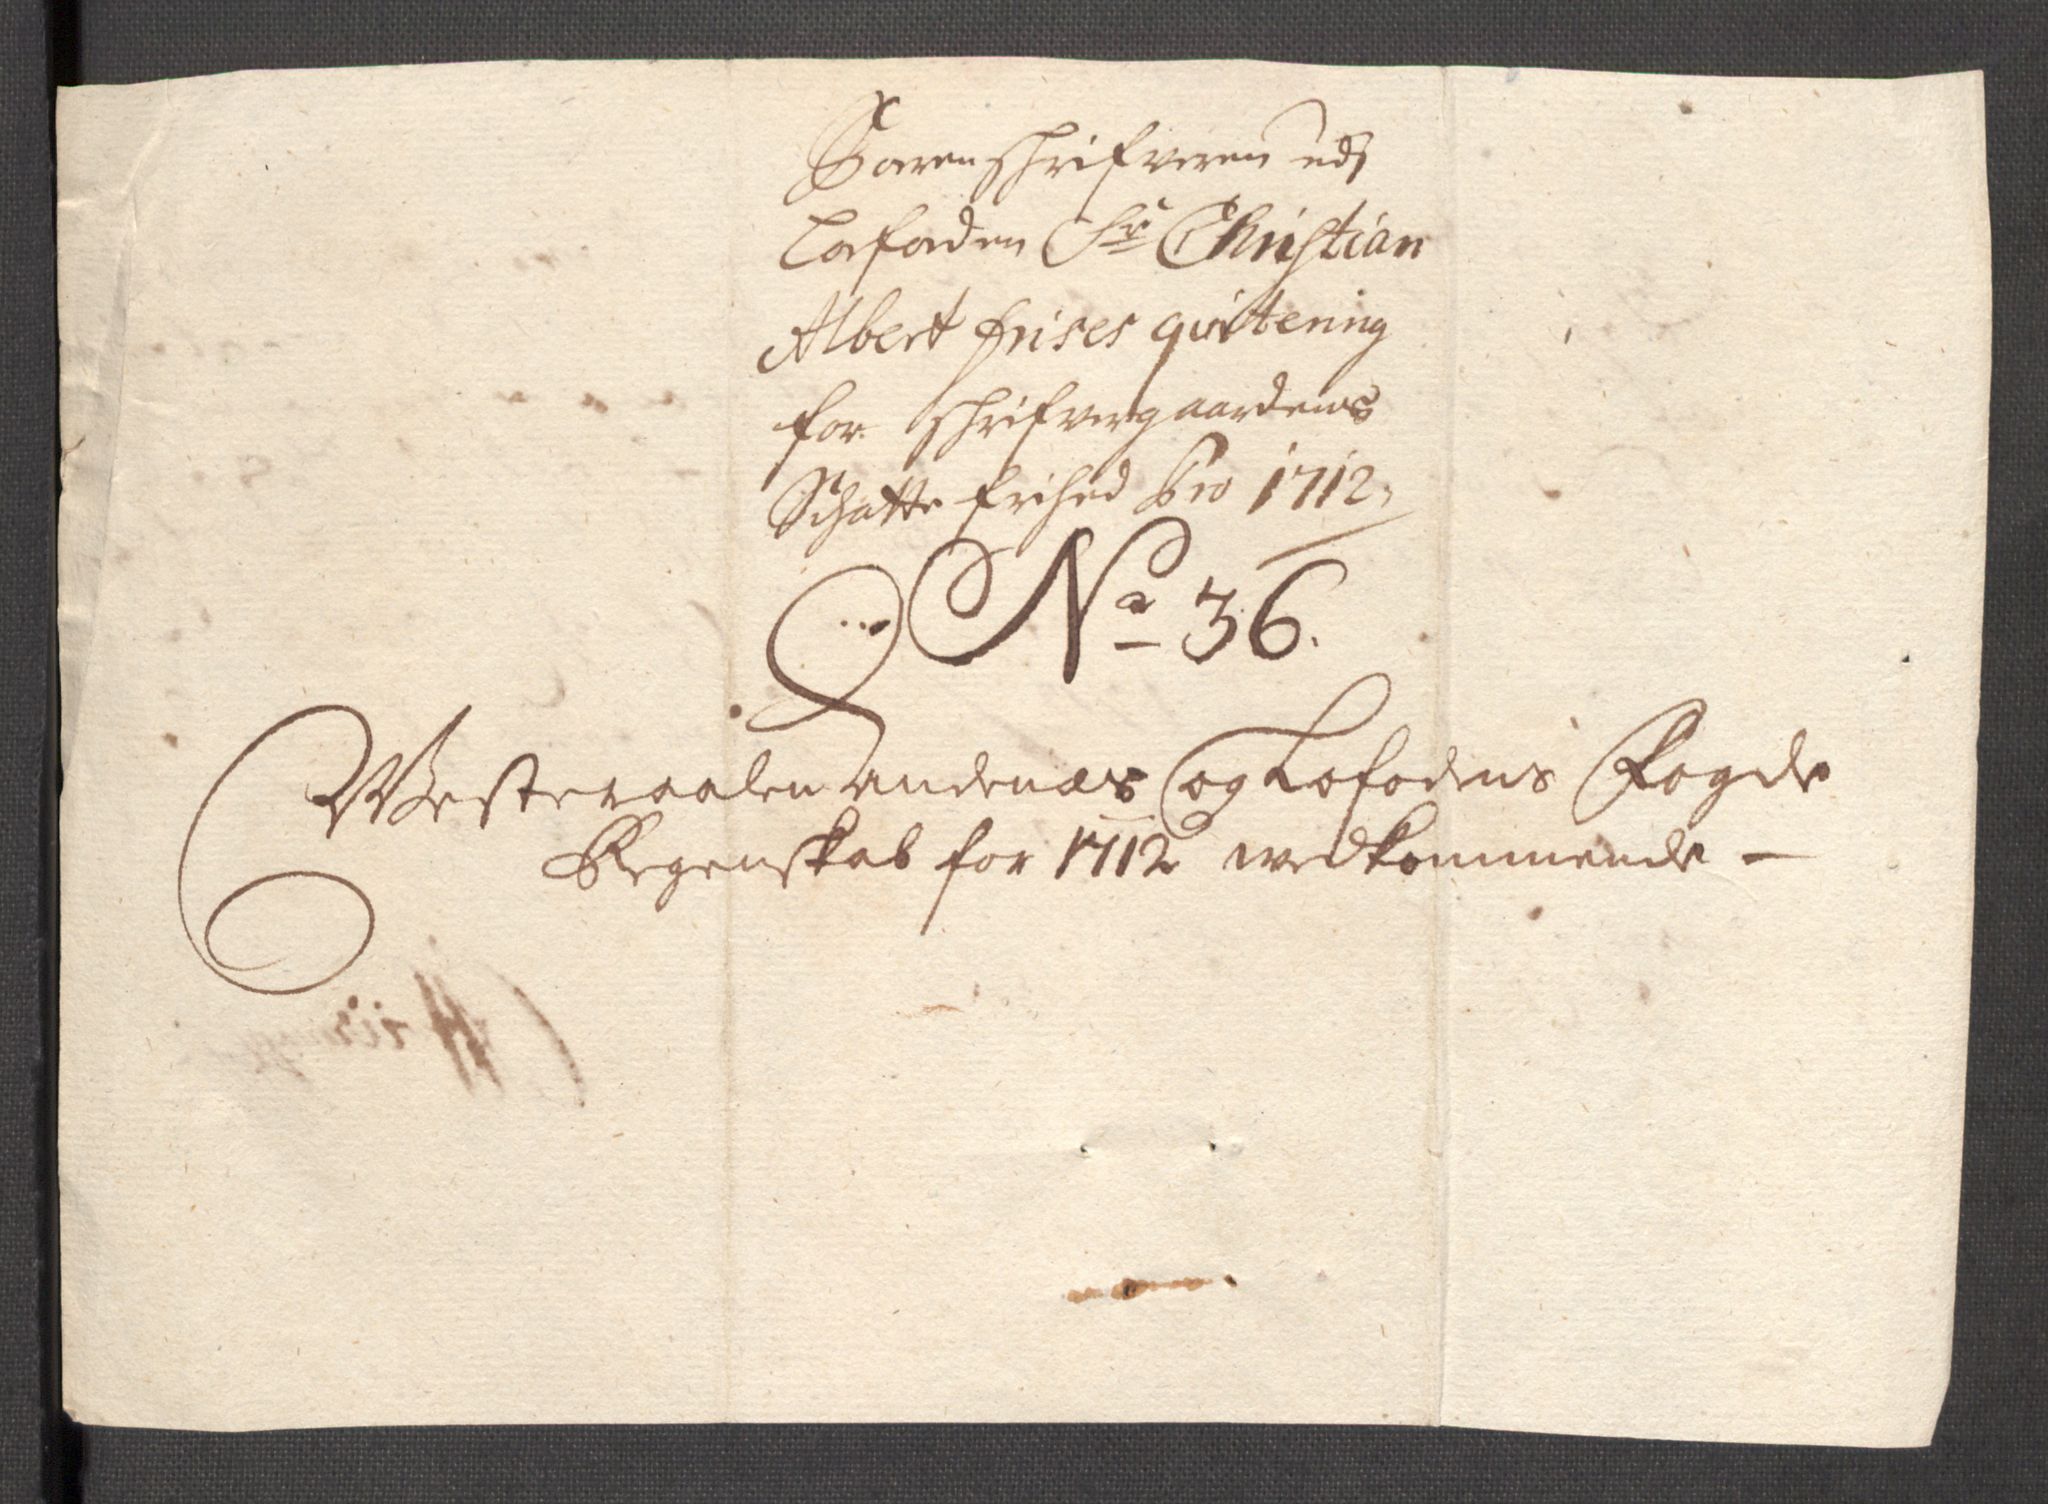 Sorenschrifveren udj
Lofoden Sr Christian
Albert frises qvitering
for schrifvergaardens
Schatte frihed Pro 1712,
No 36.
Westeraalen Andenæs og Lofodens Fogde
Regenskab for 1712 wedkommende –